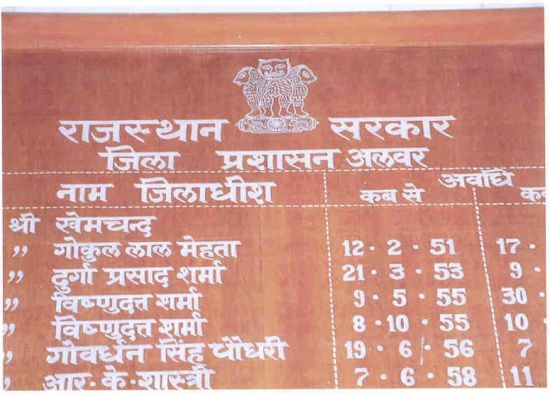 राजस्थान सरकार
जिला प्रशासन अलवर
नाम जिलाधीश कब से अवधि
श्री खेमचन्द
,, गोकुल लाल मेहता 12 · 2 · 51 17 ·
,, दुर्गा प्रसाद शर्मा 21 · 3 · 53 9 ·
,, विष्णुदत्त शर्मा 9 · 5 · 55 30 ·
,, विष्णुदत्त शर्मा 8 · 10 · 55 10 ·
,, गोवर्धन सिंह चौधरी 19 · 6 · 56 7
,, आर· के· शास्त्री 7 · 6 · 58 11